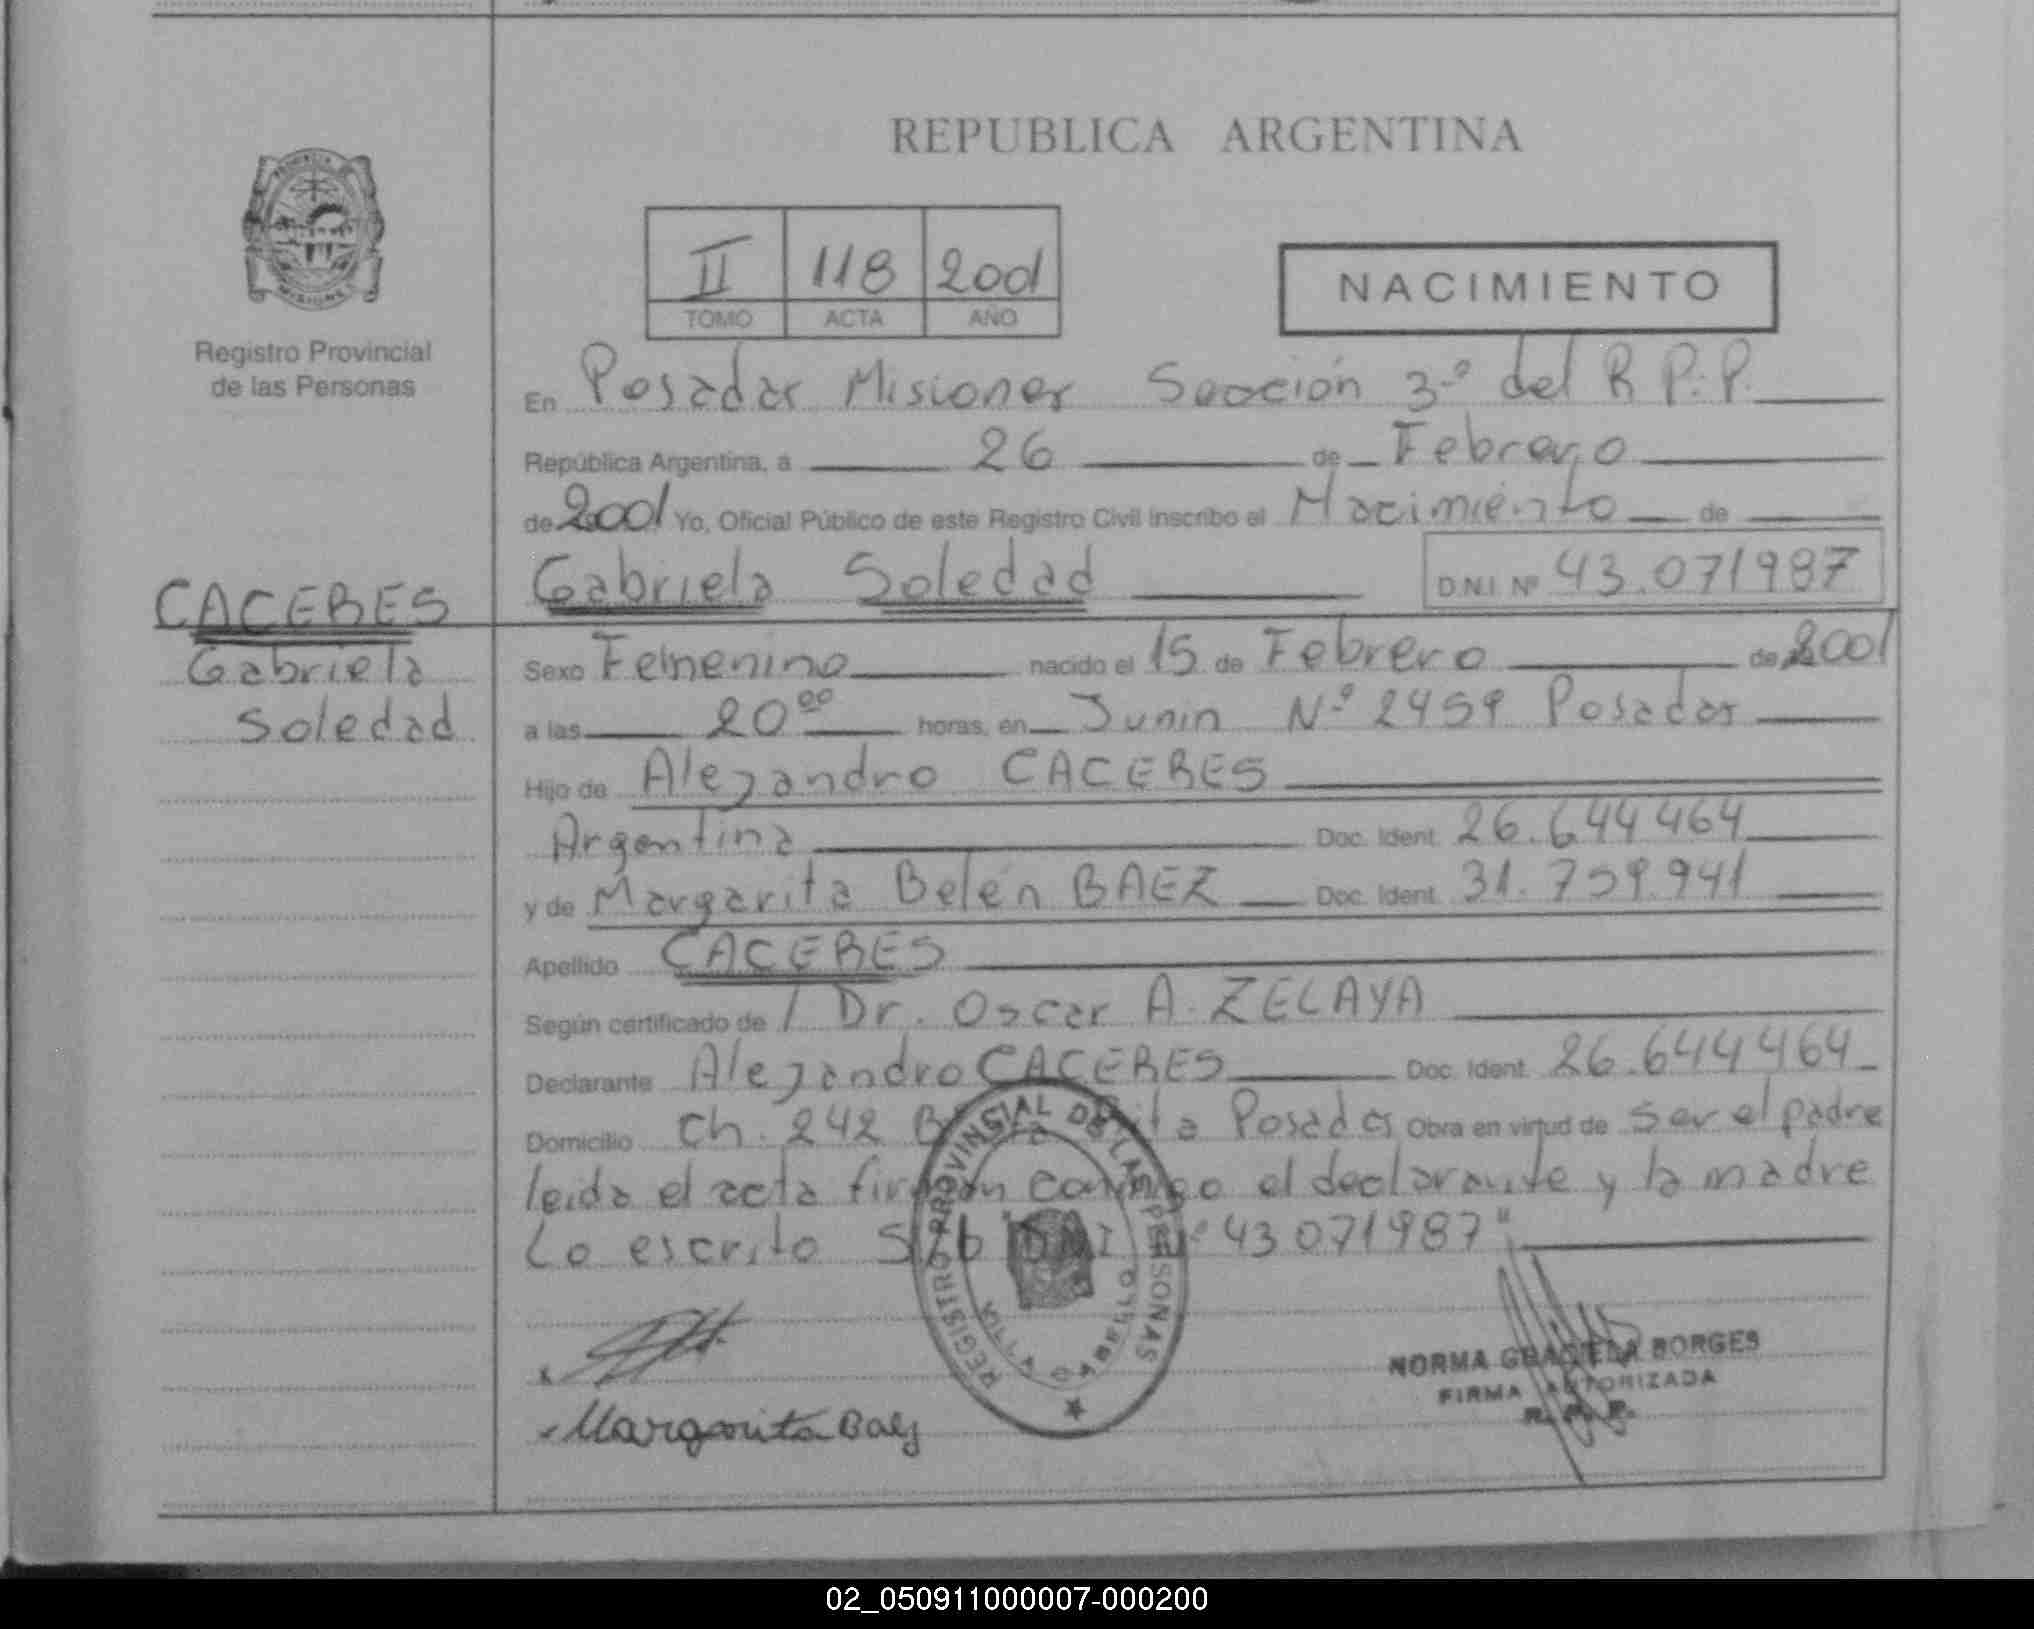 REPUBLICA ARGENTINA
PROVINCIA
MISIONES
Registro Provincial
de las Personas
II 118 2001
TOMO ACTA AÑO
NACIMIENTO
En Posadas Misiones Sección 3º del R P.P.
República Argentina, a 26 de Febrero
de 2001 Yo, Oficial Público de este Registro Civil Inscribo el Nacimiento de
Gabriela Soledad D.N.I. Nº 43.071987
CACERES
Gabriela
Soledad
Sexo Femenino nacido el 15 de Febrero de 2001
a las 20 00 horas, en Junin Nº 2459 Posadas
Hijo de Alejandro CACERES
Argentina Doc. Ident. 26.644464
y de Margarita Belén BAEZ Doc. Ident. 31.759.941
Apellido CACERES
Según certificado de / Dr. Oscar A. ZELAYA
Declarante Alejandro CACERES Doc. Ident. 26.644464
Domicilio Ch. 242 Posadas Obra en virtud de ser el padre
leida el acta firman conmigo el declarante y la madre
Lo escrito S/b "DNI Nº 43071987"
REGISTRO PROVINCIAL DE LAS PERSONAS
VILLA CABELLO
Margarita Baez
NORMA GRACIELA BORGES
FIRMA AUTORIZADA
R. P. P.
02_050911000007-000200